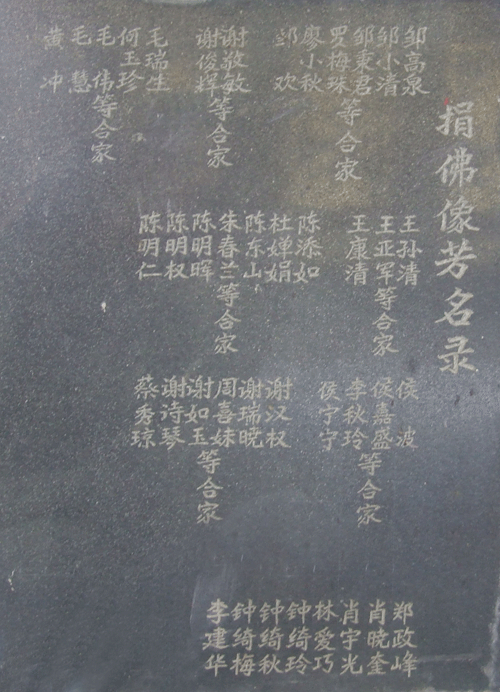 捐佛像芳名录
邹高泉
邹小清
邹秉君
罗梅珠
等合家
廖小秋
邹欢
谢敬敏
谢俊辉
等合家
毛瑞生
何玉珍
毛伟
毛慧
等合家
黄冲
王孙清
王亚军
王康清
等合家
陈添如
杜婵娟
陈东山
朱春兰
陈明晖
等合家
陈明权
陈明仁
侯波
侯嘉盛
李秋玲
侯宇宁
等合家
谢汉权
谢瑞晓
周喜妹
谢如玉
等合家
谢诗琴
蔡秀琼
郑政峰
肖晓奎
肖宇光
林爱巧
钟绮玲
钟绮秋
钟绮梅
李建华